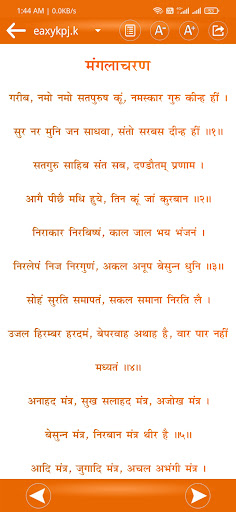 1:44 AM | 0.0KB/s
eaxykpj.k
A- A+
मंगलाचरण
गरीब, नमो नमो सतपुरुष कूं, नमस्कार गुरु कीन्ह हीं ।
सुर नर मुनि जन साधवा, संतो सरबस दीन्ह हीं ॥१॥
सतगुरु साहिब संत सब, दण्डौतम् प्रणाम ।
आगै पीछै मधि हुये, तिन कूं जां कुरबान ॥२॥
निराकार निरविषं, काल जाल भय भंजनं ।
निरलेपं निज निरगुणं, अकल अनूप बेसुन्न धुनि ॥३॥
सोहं सुरति समापतं, सकल समाना निरति लै ।
उजल हिरम्बर हरदमं, बेपरवाह अथाह है, वार पार नहीं
मध्यतं ॥४॥
अनाहद मंत्र, सुख सलाहद मंत्र, अजोख मंत्र ।
बेसुन्न मंत्र, निरबान मंत्र थीर है ॥५॥
आदि मंत्र, जुगादि मंत्र, अचल अभंगी मंत्र ।